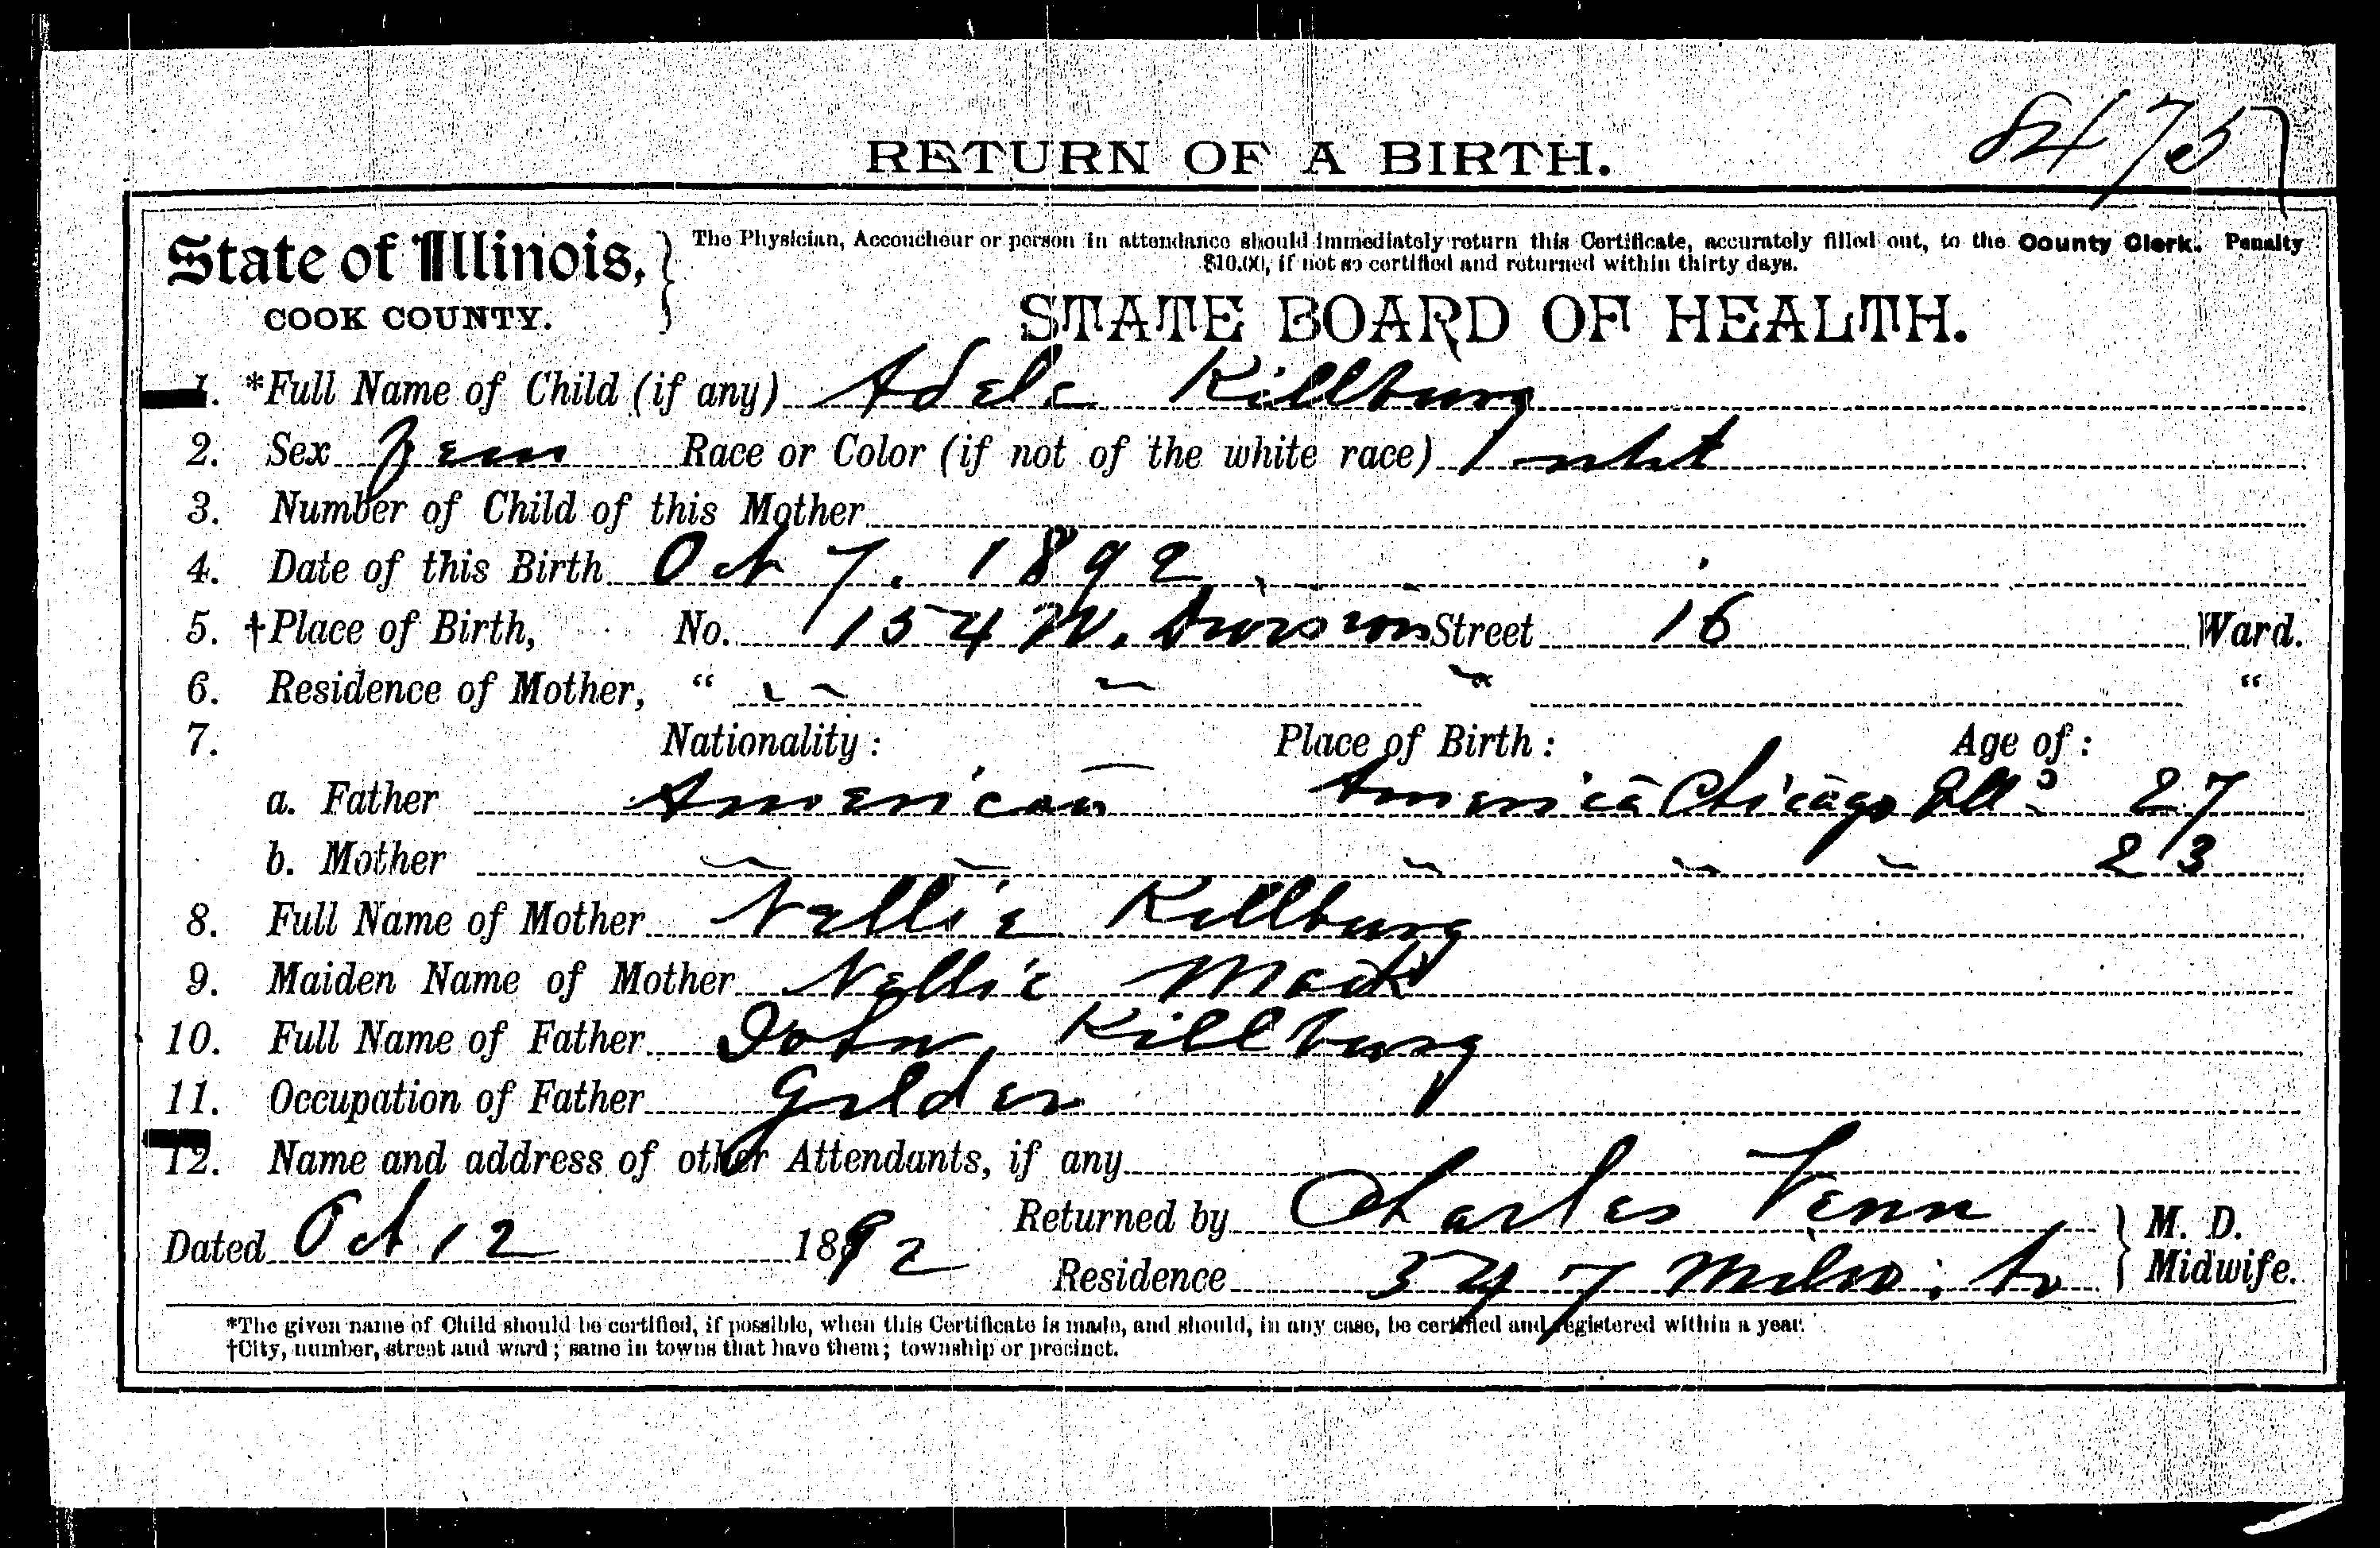 8475
RETURN OF A BIRTH.
State of Illinois,
COOK COUNTY.
The Physician, Accoucheur or person in attendance should immediately return this Certificate, accurately filled out, to the County Clerk. Penalty
$10.00, if not so certified and returned within thirty days.
STATE BOARD OF HEALTH.
1. *Full Name of Child (if any) Adele Killburg
2. Sex Fem Race or Color (if not of the white race)
3. Number of Child of this Mother
4. Date of this Birth Oct 7. 1892
5. †Place of Birth, No. 154 W. Division Street 16 Ward.
6. Residence of Mother, " " " " " "
7. Nationality: Place of Birth: Age of:
a. Father American America Chicago Ills 27
b. Mother " " " " " 23
8. Full Name of Mother Nellie Killburg
9. Maiden Name of Mother Nellie Mack
10. Full Name of Father John Killburg
11. Occupation of Father Gilder
12. Name and address of other Attendants, if any
Dated Oct 12 1892 Returned by Charles Venn } M. D.
Residence 347 Milw. Av } Midwife.
*The given name of Child should be certified, if possible, when this Certificate is made, and should, in any case, be certified and registered within a year.
†City, number, street and ward; same in towns that have them; township or precinct.